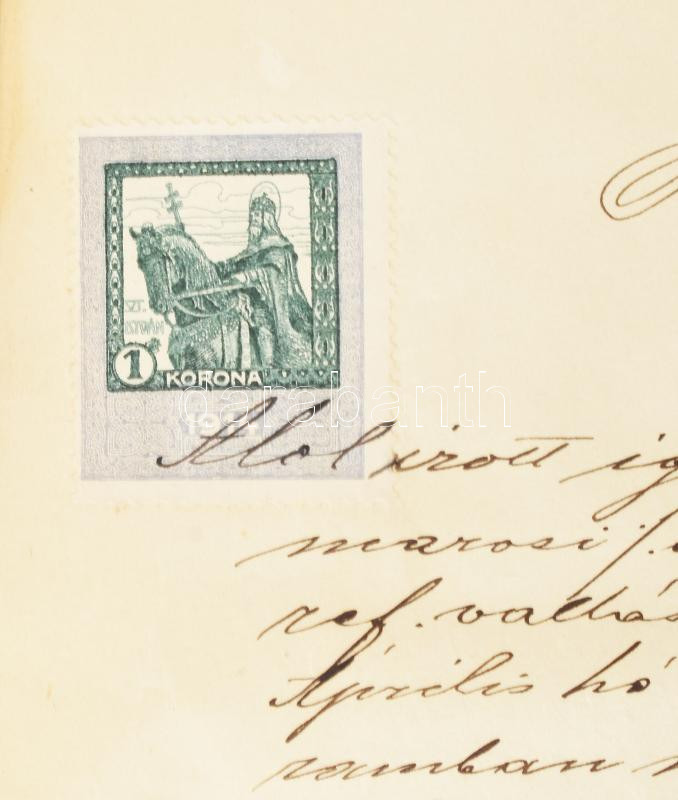 SZT.
ISTVÁN
1 KORONA
darabanth
Alolirott
marosi
ref. vallás
Április hó